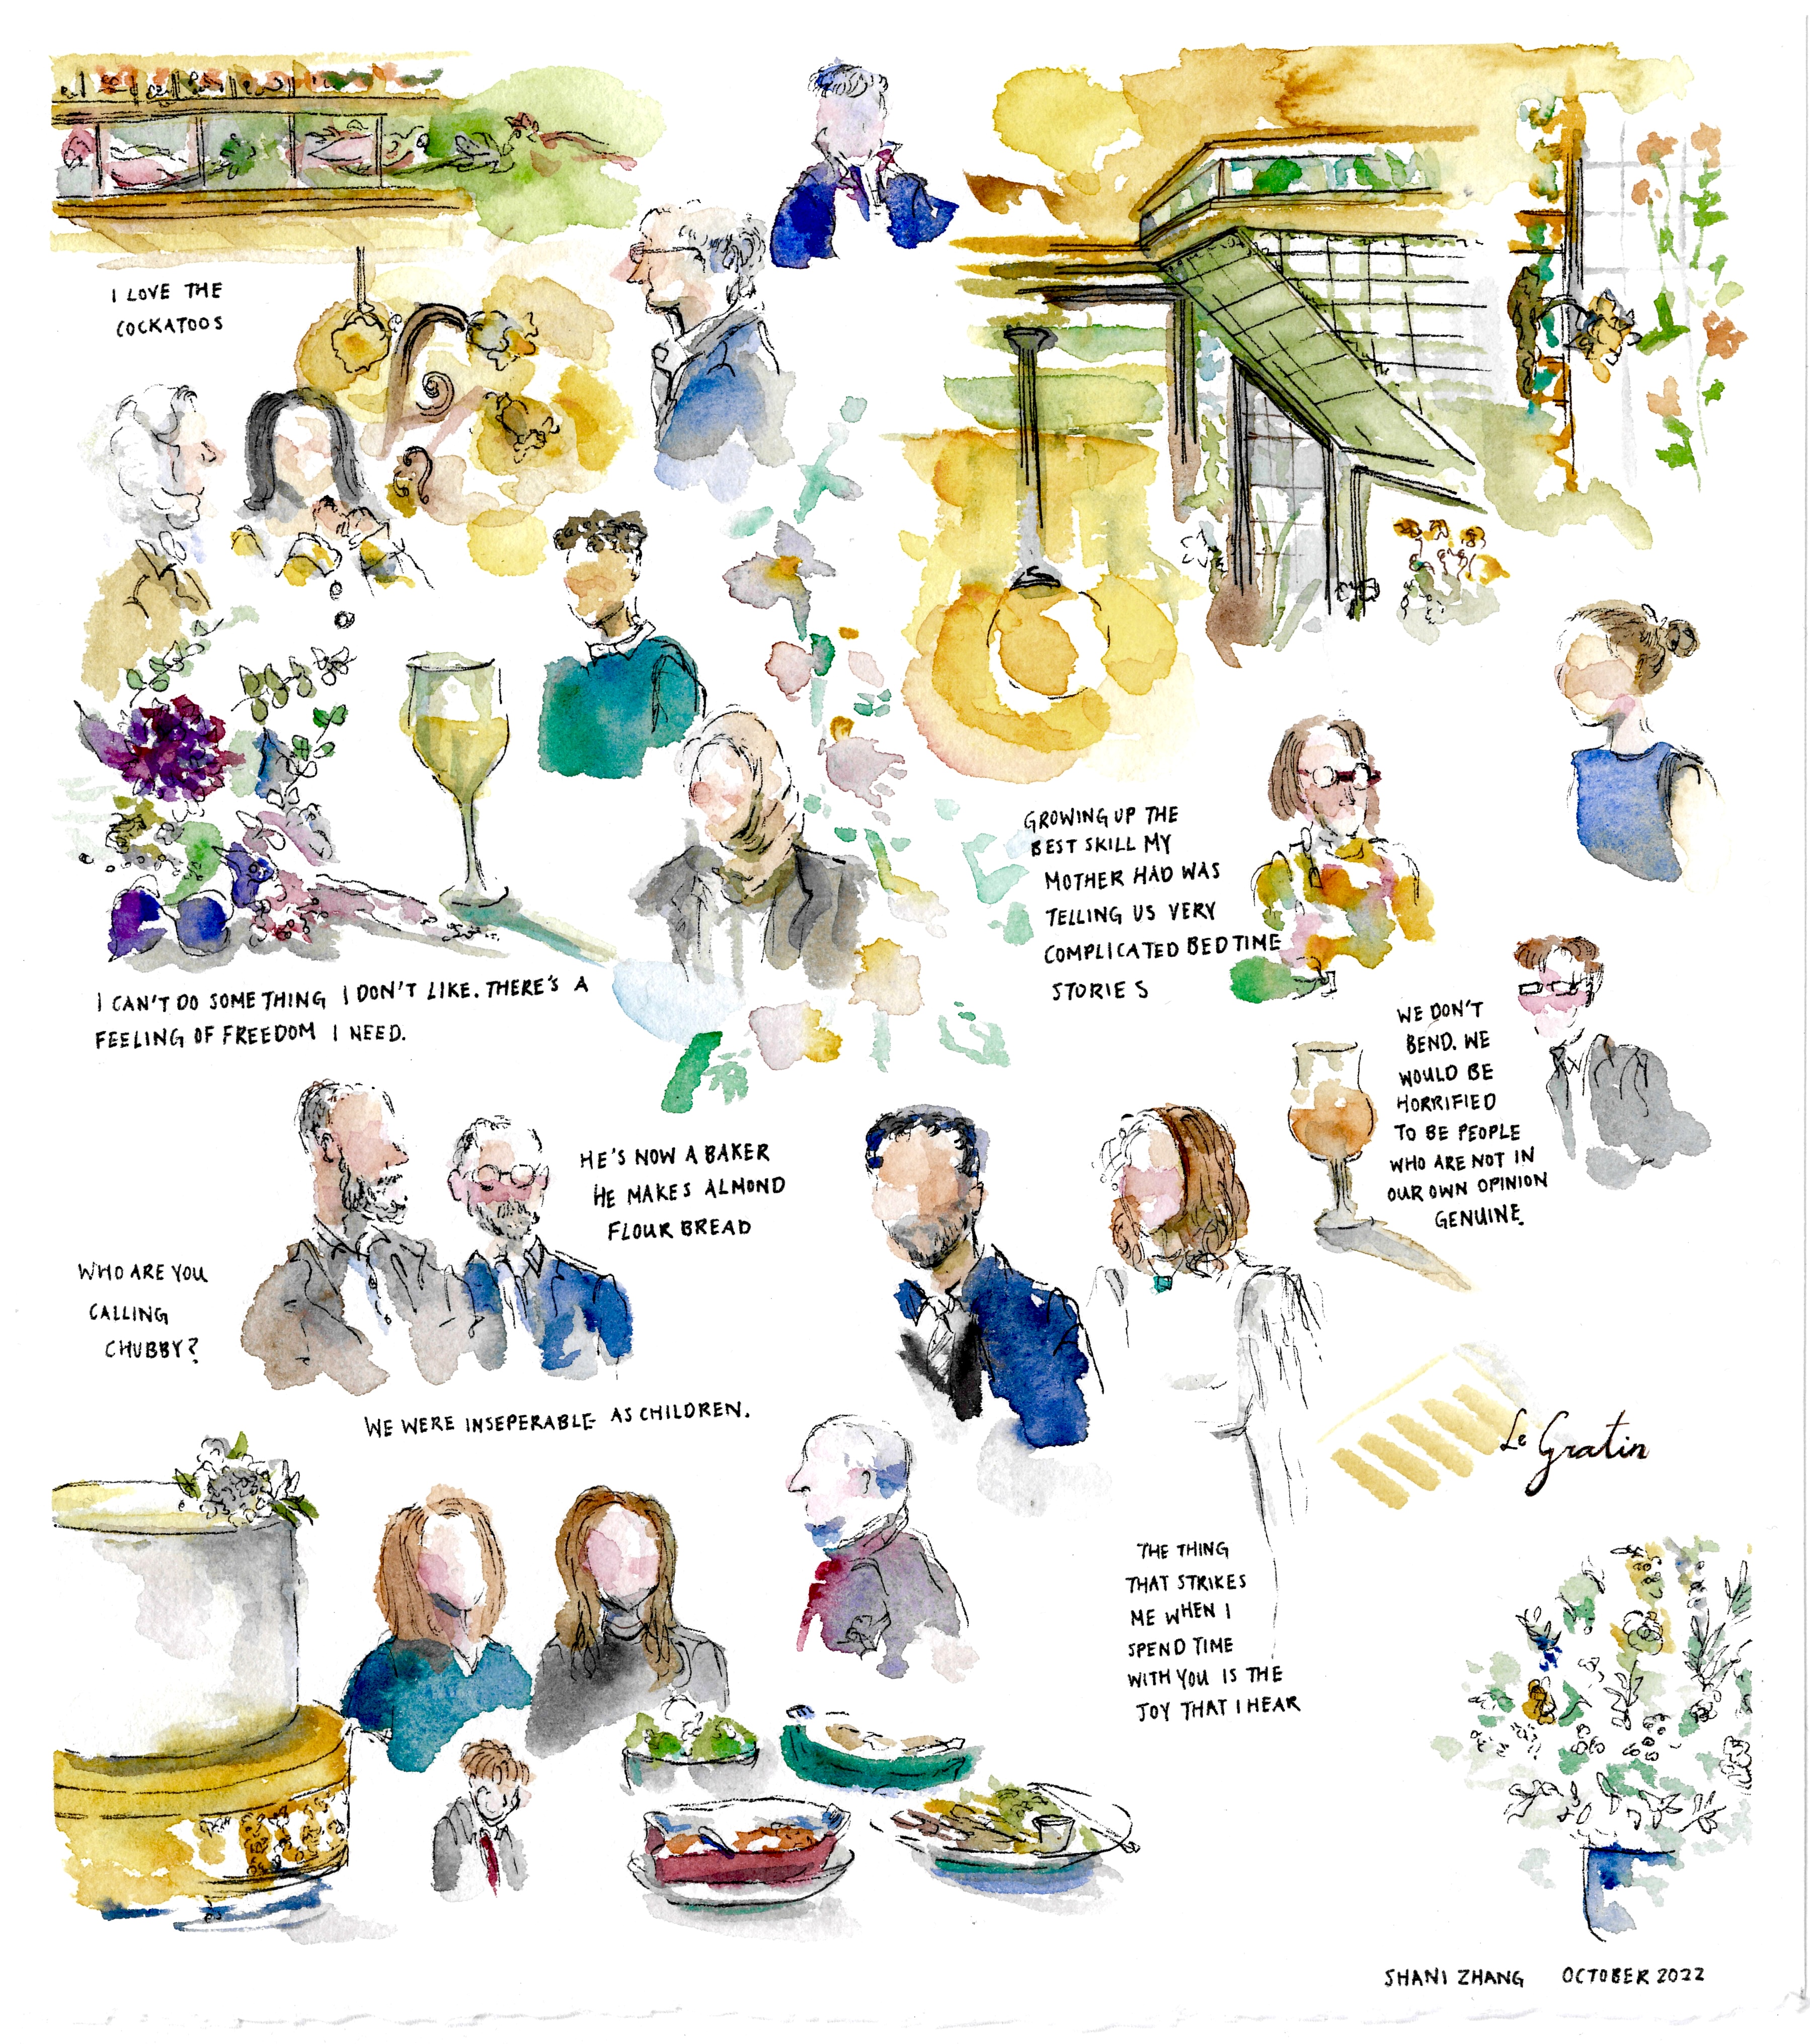 I LOVE THE
COCKATOOS
GROWING UP THE
BEST SKILL MY
MOTHER HAD WAS
TELLING US VERY
COMPLICATED BEDTIME
STORIES
I CAN'T DO SOMETHING I DON'T LIKE. THERE'S A
FEELING OF FREEDOM I NEED.
WE DON'T
BEND. WE
WOULD BE
HORRIFIED
TO BE PEOPLE
WHO ARE NOT IN
OUR OWN OPINION
GENUINE.
HE'S NOW A BAKER
HE MAKES ALMOND
FLOUR BREAD
WHO ARE YOU
CALLING
CHUBBY?
WE WERE INSEPERABLE AS CHILDREN.
Le Gratin
THE THING
THAT STRIKES
ME WHEN I
SPEND TIME
WITH YOU IS THE
JOY THAT I HEAR
SHANI ZHANG OCTOBER 2022